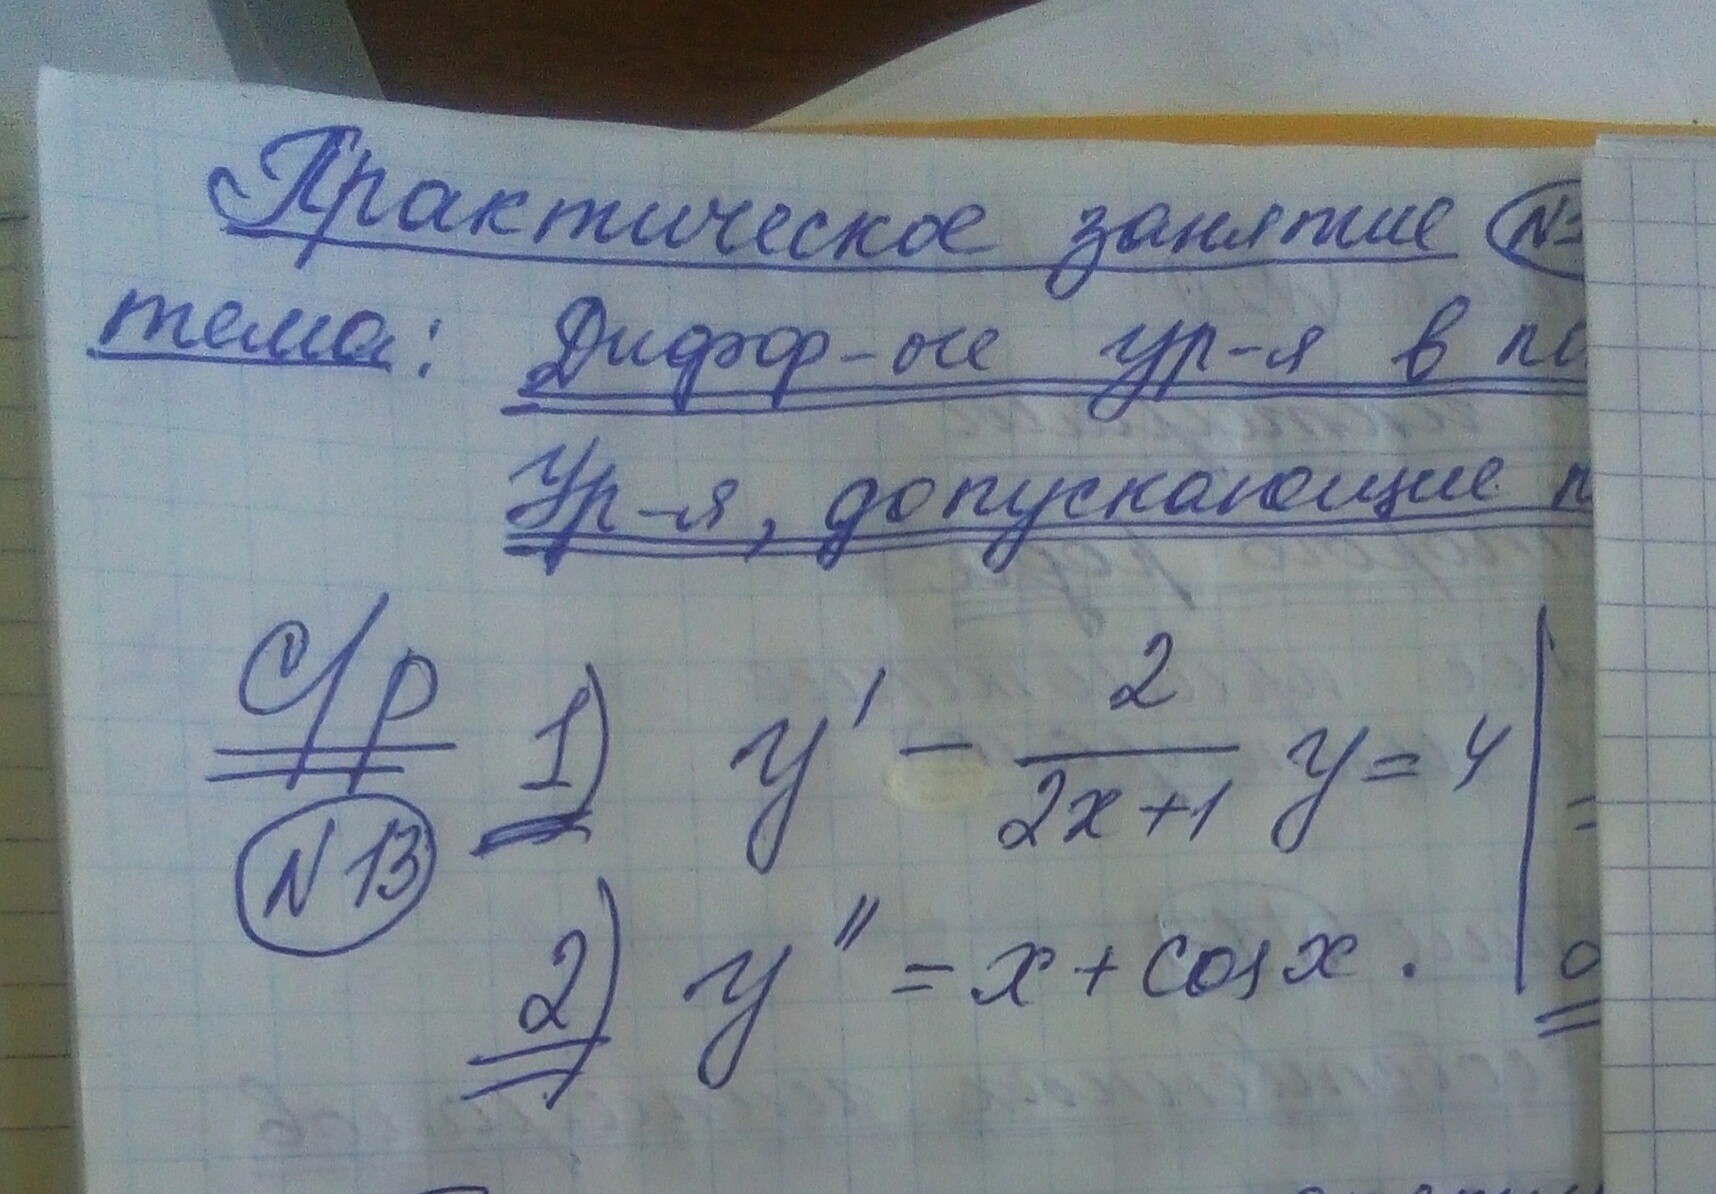 Практическое занятие №
тема: Дифф-ые ур-я в по
Ур-я, допускающие п
С/р 1) y' - 2/(2x+1) y = 4
N13
2) y'' = x + cos x.